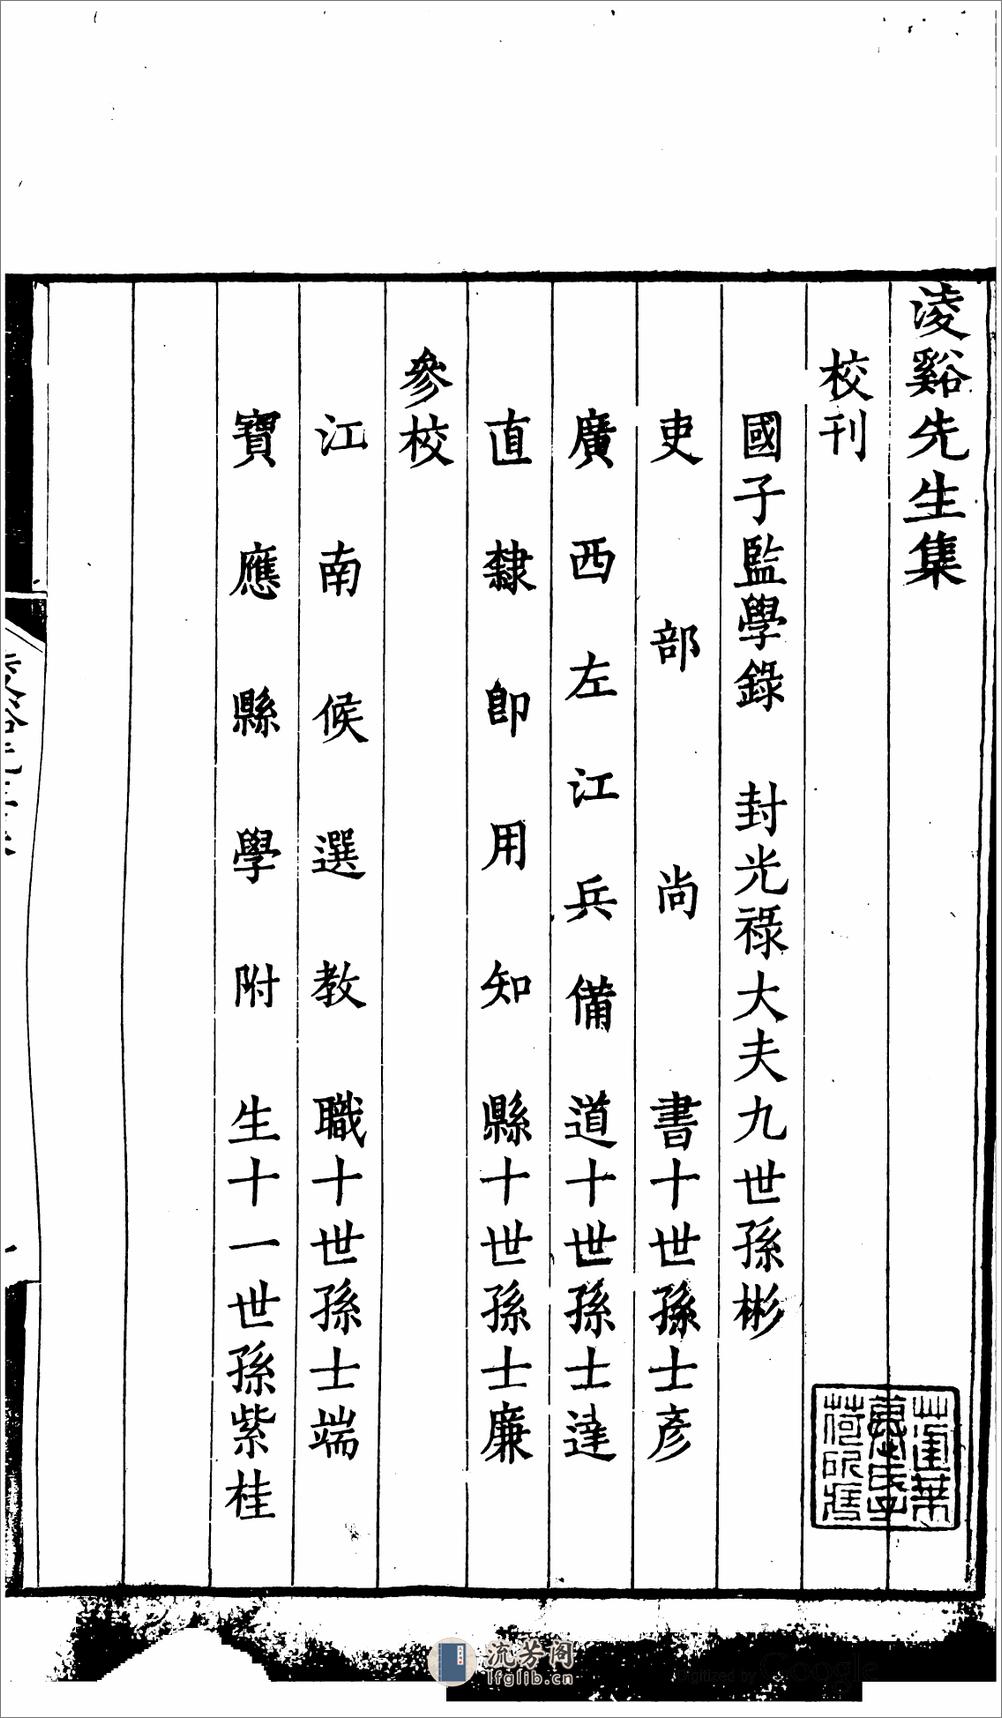 淩谿先生集
校刊
國子監學錄　封光祿大夫九世孫彬
吏部尚書十世孫士彥
廣西左江兵備道十世孫士達
直隸卽用知縣十世孫士廉
參校
江南候選教職十世孫士端
寶應縣學附生十一世孫紫桂
流芳阁
lfglib.cn
Digitized by Google